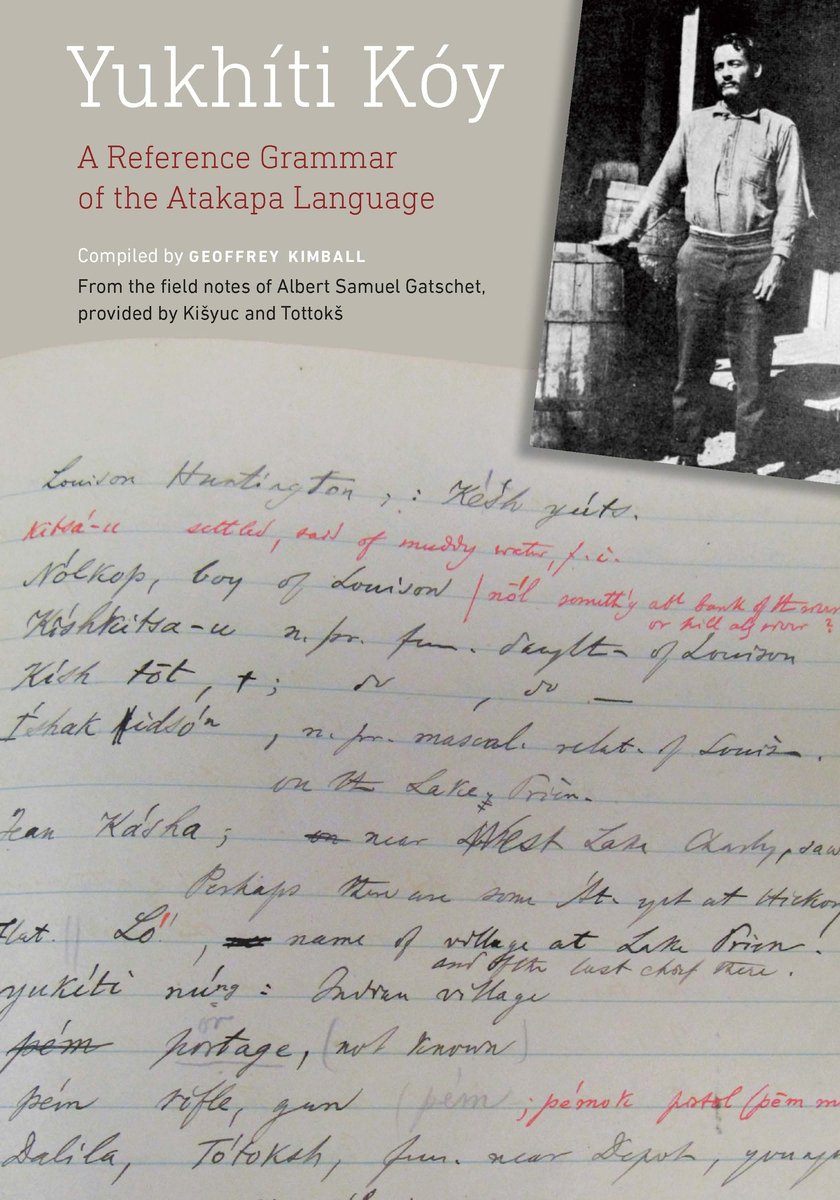 Yukhíti Kóy
A Reference Grammar
of the Atakapa Language
Compiled by GEOFFREY KIMBALL
From the field notes of Albert Samuel Gatschet,
provided by Kišyuc and Tottokš
Louison Huntington ; : Késh yúts.
Kitsá-u settled, said of muddy water, f. i.
Nólkop, boy of Louison / nól someth'g abt bank of the river
or hill alg river ?
Kíshkítsa-u n. pr. fem. daught- of Louison
Kísh tōt, + ; do , do —
Íshak , n. pr. mascul. relat. of Louis-.
on the Lake, Prien.
Jean Kásha ; near West Lake Charly, saw
Perhaps there are some At. yet at Hickory
Lō" , name of village at Lake Prien.
and of the last chief there.
yukíti núng : Indian village
pém portage, (not known)
or
pém rifle, gun (pém ; pémok pistol (pēm
Dalíla, Tótoksh, fem. near Depot,